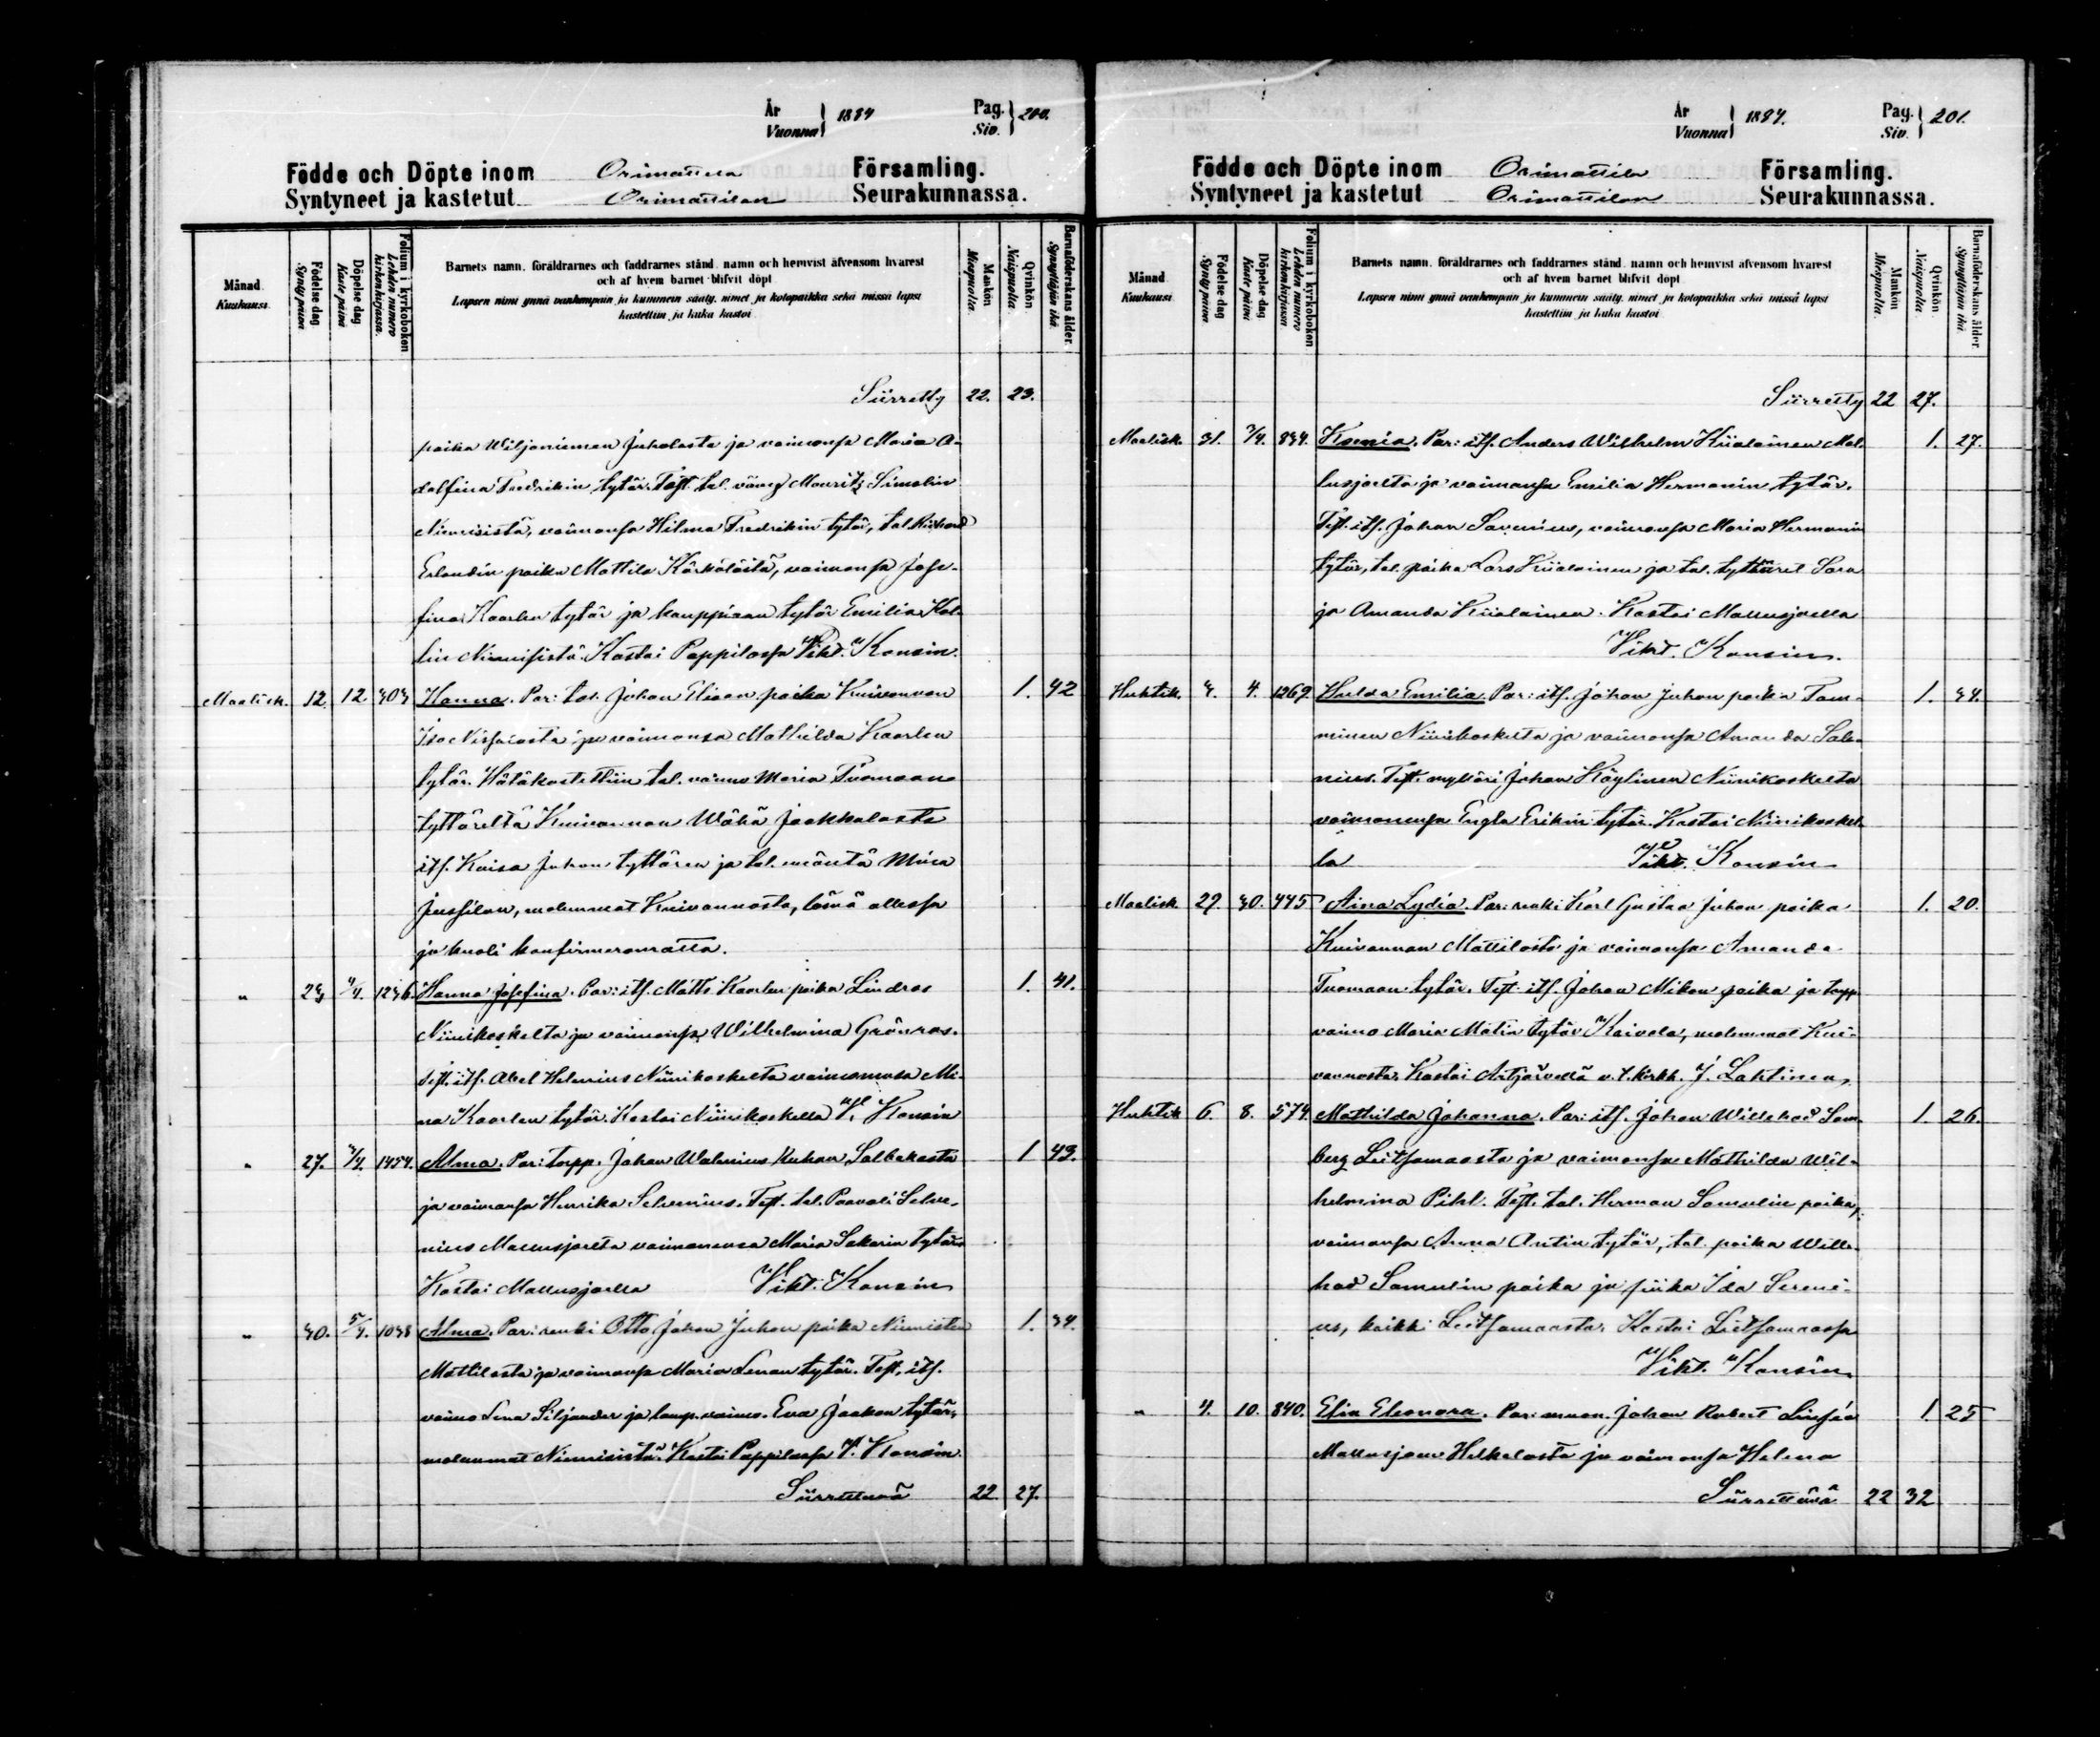 År
Vuonna } 1884
Pag.
Siv. } 200.
Födde och Döpte inom Orimattila Församling.
Syntyneet ja kastetut Orimattilan Seurakunnassa.
Månad. Kuukausi.
Födelse dag Synty päivä
Döpelse dag Kaste päivä
Folium i kyrkoboken Lehden numero kirkonkirjassa.
Barnets namn, föräldrarnes och faddrarnes stånd, namn och hemvist äfvensom hvarest
och af hvem barnet blifvit döpt
Lapsen nimi ynnä vanhempain ja kummein sääty, nimet ja kotopaikka sekä missä lapsi
kastettiin ja kuka kastoi
Mankön Miespuolta.
Qvinkön. Naispuolta
Barnaföderskans ålder. Synnyttäjän ikä.
Siirretty 22. 23.
poika Wiljaniemen Juholasta ja vaimonsa Maria A-
dolfina Fredrikin tytär. Test. tal. Mauritz Simolin
Niinisistä, vaimonsa Hilma Fredrikin tytär, tal. Richard
Erlandin poika Mattila Kärkölästä, vaimonsa Jose-
fina Kaarlen tytär ja kauppiaan tytär Emilia
Kastoi Pappilassa Vikt. Konsin.
Maalisk. 12. 12 303 Hanna. Par: tal. Johan Eliaan poika Kuivannon
ja vaimonsa Mathilda Kaarlen
tytär. Hätäkastettiin tal. vaimo Maria Tuomaan
tyttäreltä Kuivannon Wähä Jaakkolasta
its. Kaisa Juhan tyttären ja tal. Miina
Jussilan, molemmat Kuivannosta, läsnä ollessa
ja kuoli konfirmeeramatta. 1. 42
" 23 4/4. 1236. Hanna Josefina. Par: its. Matts Kaarlen poika Lindros
Niinikoskelta ja vaimonsa Wilhelmina Grönroos.
Test. its. Abel Helenius Niinikoskelta vaimonensa Mi-
na Kaarlen tytär. Kastoi Niinikoskella V. Konsin 1. 41.
" 27. 3/4. 1454. Alma. Par: torpp. Johan Walenius Salbakasta
ja vaimonsa Henrika Selvenius. Test. tal. Paavali Selve-
nius Mallusjoelta vaimonensa Maria Sakarin tytär.
Kastoi Mallusjoella Vikt. Konsin 1 43.
" 30. 5/4. 1038 Alma. Par: renki Otto Johan Juhan poika Niinisten
Mattilasta ja vaimonsa Maria Leenan tytär. Test. its.
vaimo Lena Siljander ja lamp. vaimo. Eva Jaakon tytär,
molemmat Niinisistä. Kastoi Pappilassa V. Konsin. 1. 34.
Siirrettävä 22. 27.
År
Vuonna } 1884.
Pag.
Siv. } 201.
Födde och Döpte inom Orimattila Församling.
Syntyneet ja kastetut Orimattilan Seurakunnassa.
Månad Kuukausi
Födelse dag Synty päivä
Döpelse dag Kaste päivä
Folium i kyrkoboken Lehden numero kirkonkirjassa
Barnets namn, föräldrarnes och faddrarnes stånd, namn och hemvist äfvensom hvarest
och af hvem barnet blifvit döpt
Lapsen nimi ynnä vanhempain ja kummein sääty, nimet ja kotopaikka sekä missä lapsi
kastettiin ja kuka kastoi
Mankön Miespuolta.
Qvinkön. Naispuolta
Barnaföderskans ålder. Synnyttäjän ikä.
Siirretty 22 27.
Maalisk. 31. 3/4. 834. Ksenia. Par: its. Anders Wilhelm Kiialainen Mal-
lusjoelta ja vaimonsa Emilia Hermanin tytär.
Test. its. Johan Savenius, vaimonsa Maria Hermanin
tytär, tal. poika Lars Kiialainen ja tal. tyttäret Sara
ja Amanda Kiialainen. Kastoi Mallusjoella
Vikt. Konsin. 1. 27.
Huhtik. 3. 4. 1269. Hulda Emilia. Par: its. Johan Juhan poika Tam-
minen Niinikoskelta ja vaimonsa Amanda Sale-
nius. Test. mylläri Johan Köylinen Niinikoskelta
vaimonensa Engla Erikin tytär. Kastoi Niinikoskel-
la Vikt. Konsin 1. 34.
Maalisk. 29. 30. 445 Aina Lydia. Par: renki Karl Gustaa Juhan poika
Kuivannon Mattilasta ja vaimonsa Amanda
Tuomaan tytär. Test. its. Johan Mikon poika ja torpp.
vaimo Maria Matin tytär Kaivola, molemmat Kui-
vannosta. Kastoi Artjärvellä v. t. kirkh. J. Lahtinen. 1. 20.
Huhtik 6. 8. 574. Mathilda Johanna. Par: its. Johan Willehad Sam-
berg Leitsamaasta ja vaimonsa Mathilda Wil-
helmina Pihl. Test. tal. Herman Samulin poika,
vaimonsa Anna Antin tytär, tal. poika Wille-
had Samulin poika ja piika Ida Sereni-
us, kaikki Leitsamaasta. Kastoi Leitsamaassa
Vikt. Konsin 1. 26.
" 4. 10. 840. Elin Eleonora. Par: muon. Johan Robert
Mallusjoen Heikkolasta ja vaimonsa Helena 1. 25
Siirrettävä 22 32